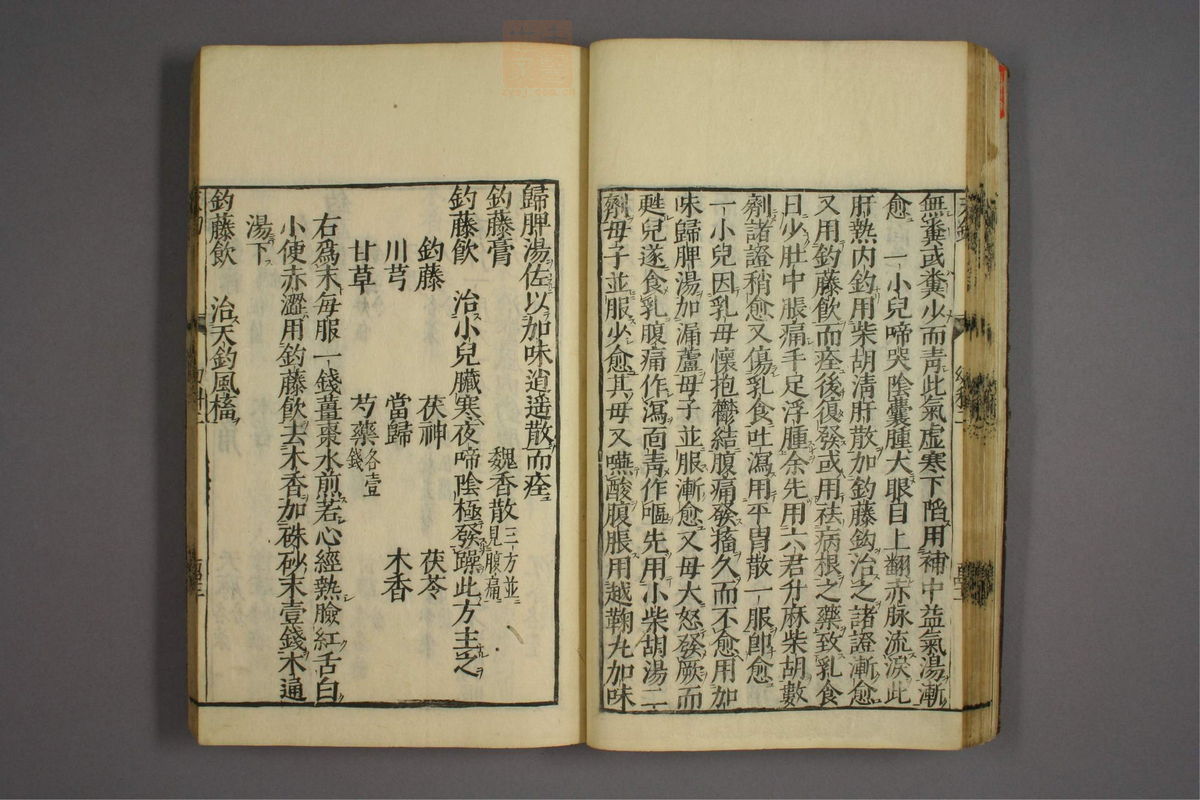 無糞或糞少而青此氣虛寒下陷用補中益氣湯漸
愈 一小兒啼哭陰囊腫大眼目上翻赤脉流淚此
肝熱内釣用柴胡清肝散加釣藤鈎治之諸證漸愈
又用釣藤飲而痊後復發或用祛病根之藥致乳食
日少肚中脹痛手足浮腫余先用六君升麻柴胡數
劑諸證稍愈又傷乳食吐瀉用平胃散一服即愈
一小兒因乳母懷抱鬱結腹痛發搐久而不愈用加
味歸脾湯加漏蘆母子並服漸愈又母大怒發厥而
甦兒遂食乳腹痛作瀉面青作嘔先用小柴胡湯二
劑母子並服少愈其母又嚥酸腹脹用越鞠丸加味
歸脾湯佐以加味逍遥散而痊
釣藤膏 魏香散三方並見腹痛
釣藤飲 治小兒臟寒夜啼陰極發躁此方主之
釣藤 茯神 茯苓
川芎 當歸 木香
甘草 芍藥各壹錢
右爲末每服一錢薑棗水煎若心經熱臉紅舌白
小便赤澀用釣藤飲去木香加硃砂末壹錢木通
湯下
釣藤飲 治天釣風搐